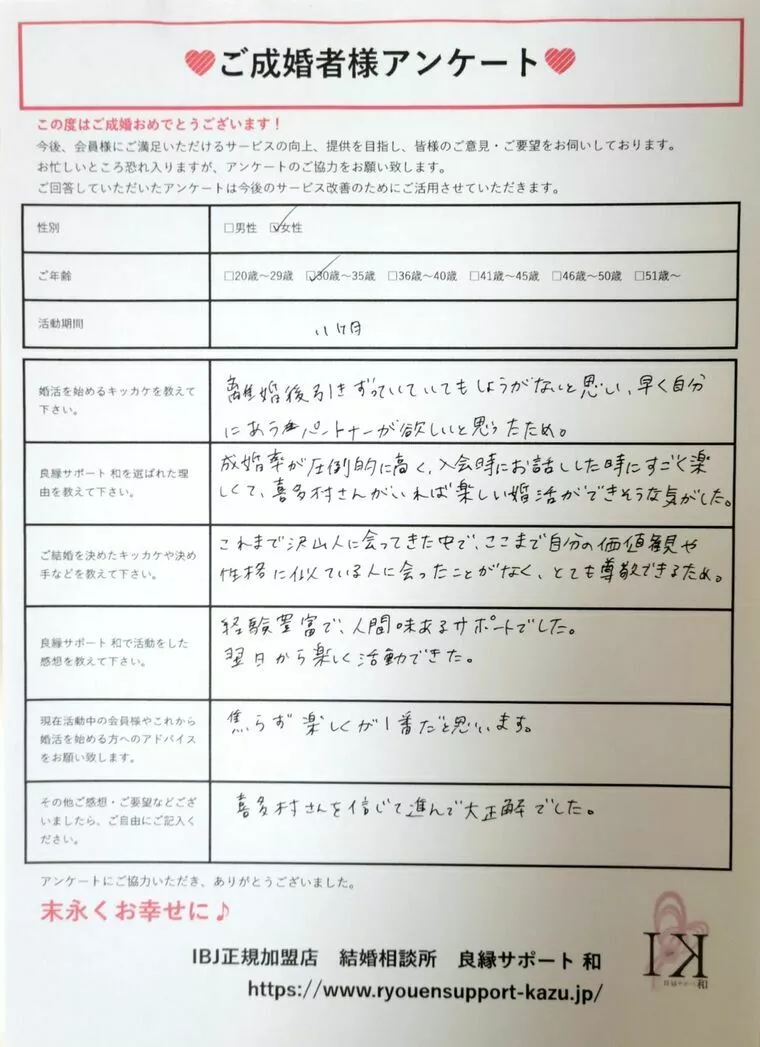 ご成婚者様アンケート
この度はご成婚おめでとうございます！
今後、会員様にご満足いただけるサービスの向上、提供を目指し、皆様のご意見・ご要望をお伺いしております。
お忙しいところ恐れ入りますが、アンケートのご協力をお願い致します。
ご回答していただいたアンケートは今後のサービス改善のためにご活用させていただきます。
性別
□男性 ☑女性
ご年齢
□20歳～29歳 ☑30歳～35歳 □36歳～40歳 □41歳～45歳 □46歳～50歳 □51歳～
活動期間
11ヶ月
婚活を始めるキッカケを教えて
下さい。
離婚後引きずっていていてもしようがないと思い、早く自分
にあうパートナーが欲しいと思ったため。
良縁サポート 和を選ばれた理
由を教えて下さい。
成婚率が圧倒的に高く、入会時にお話しした時にすごく楽
しくて、喜多村さんがいれば楽しい婚活ができそうな気がした。
ご結婚を決めたキッカケや決め
手などを教えて下さい。
これまで沢山人に会ってきた中で、ここまで自分の価値観や
性格に似ている人に会ったことがなく、とても尊敬できるため。
良縁サポート 和で活動をした
感想を教えて下さい。
経験豊富で、人間味あるサポートでした。
翌日から楽しく活動できた。
現在活動中の会員様やこれから
婚活を始める方へのアドバイス
をお願い致します。
焦らず楽しくが1番だと思います。
その他ご感想・ご要望などござ
いましたら、ご自由にご記入く
ださい。
喜多村さんを信じて進んで大正解でした。
アンケートにご協力いただき、ありがとうございました。
末永くお幸せに♪
IBJ正規加盟店 結婚相談所 良縁サポート 和
https://www.ryouensupport-kazu.jp/
KI
良縁サポート 和